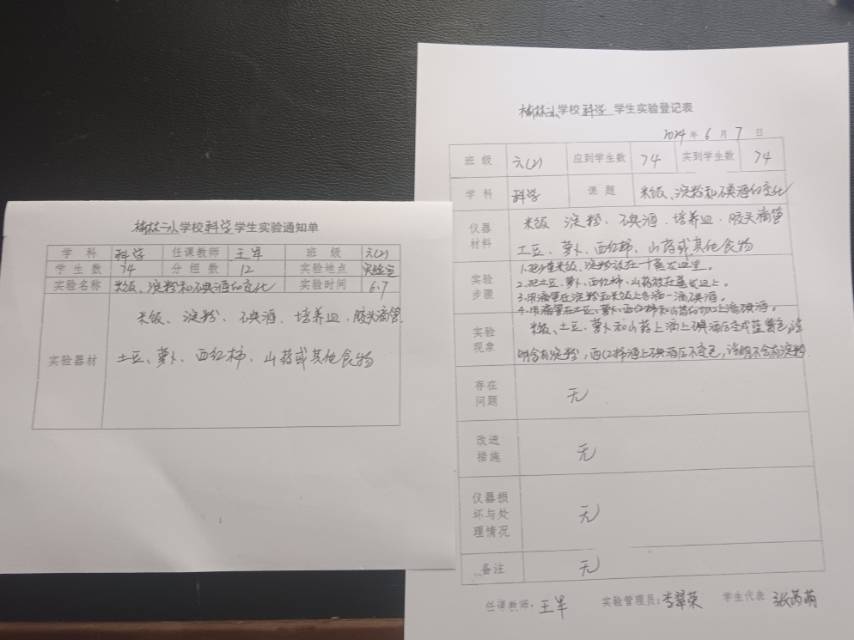 学校科学学生实验通知单
学科 科学 任课教师 王军 班级 六(2)
学生数 74 分组数 12 实验地点 实验室
实验名称 米饭、淀粉和碘酒的变化 实验时间 6.7
实验器材
米饭、淀粉、碘酒、培养皿、胶头滴管
土豆、萝卜、西红柿、山药或其他食物
学校科学学生实验登记表
2024年6月7日
班级 六(2) 应到学生数 74 实到学生数 74
学科 科学 课题 米饭、淀粉和碘酒的变化
仪器材料
米饭 淀粉、碘酒、培养皿、胶头滴管
土豆、萝卜、西红柿、山药或其他食物
实验步骤
1.把少量米饭、淀粉放在培养皿里。
2.把土豆、萝卜、西红柿、山药放在盖皿上。
3.用滴管在淀粉和米饭上各滴一滴碘酒。
4.用滴管在土豆、萝卜、西红柿和山药的切口上滴碘酒。
实验现象
米饭、土豆、萝卜和山药上滴上碘酒后变成蓝紫色,说
明含有淀粉,西红柿滴上碘酒后不变色,说明不含有淀粉
存在问题 无
改进措施 无
仪器损坏与处理情况 无
备注 无
任课教师:王军 实验管理员:李翠荣 学生代表:张